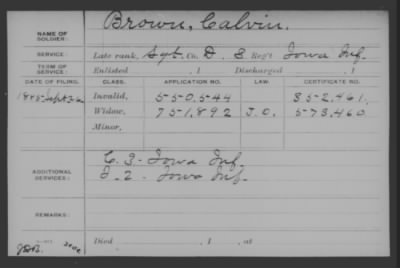 Brown, Calvin.
NAME OF SOLDIER:
SERVICE: Late rank, Sgt. Co. D, 8 Reg't Iowa Inf.
TERM OF SERVICE: Enlisted , 1 Discharged , 1
DATE OF FILING. CLASS. APPLICATION NO. LAW. CERTIFICATE NO.
1885 Sept 26 Invalid, 550,544 352,461.
Widow, 751,892 J.O. 573,460
Minor,
ADDITIONAL SERVICES: C. 3. Iowa Inf.
I. 2. Iowa Inf.
REMARKS:
Died , 1 , at